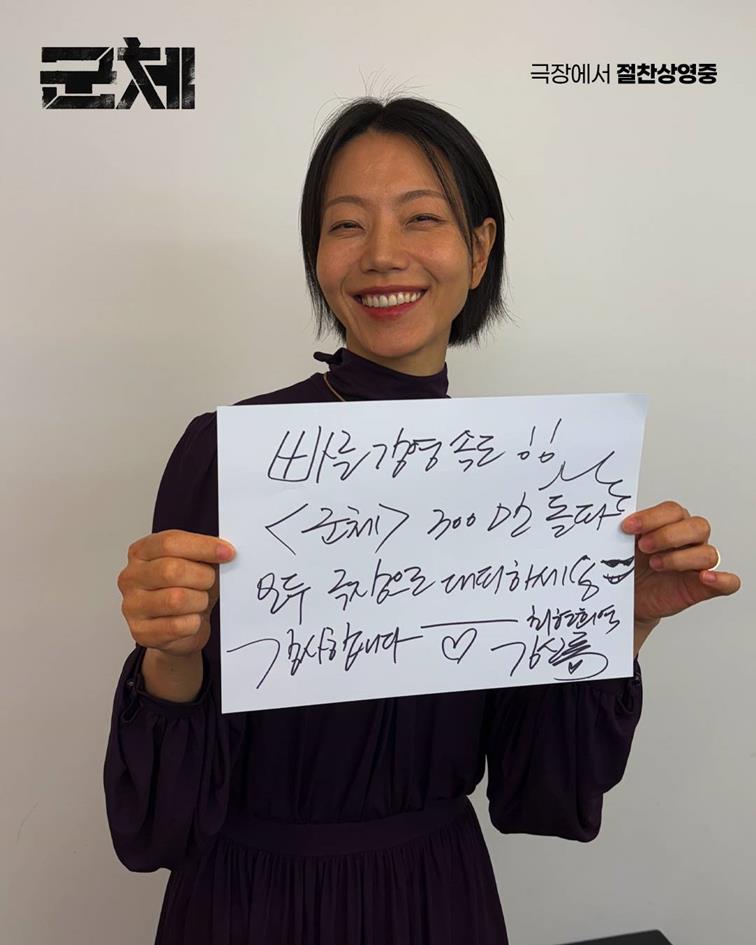 군체
극장에서 절찬상영중
빠른 감염 속도 !!
<군체> 300만 돌파
모두 극장으로 대피하세요
최현희역
감사합니다 ♡ 김신록